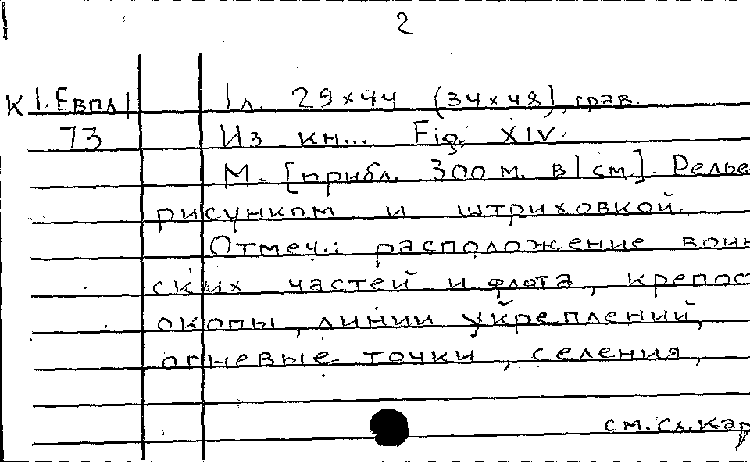 2
К 1. Евпл 1 1 л. 29×44 (34×48), грав.
73 Из кн... Fig. XIV.
М. [прибл. 300 м. в 1 см.] Релье
рисунком и штриховкой.
Отмеч.: расположение воин
ских частей и флота, крепос
окопы, линии укреплений,
огневые точки, селения,
см. сл. кар